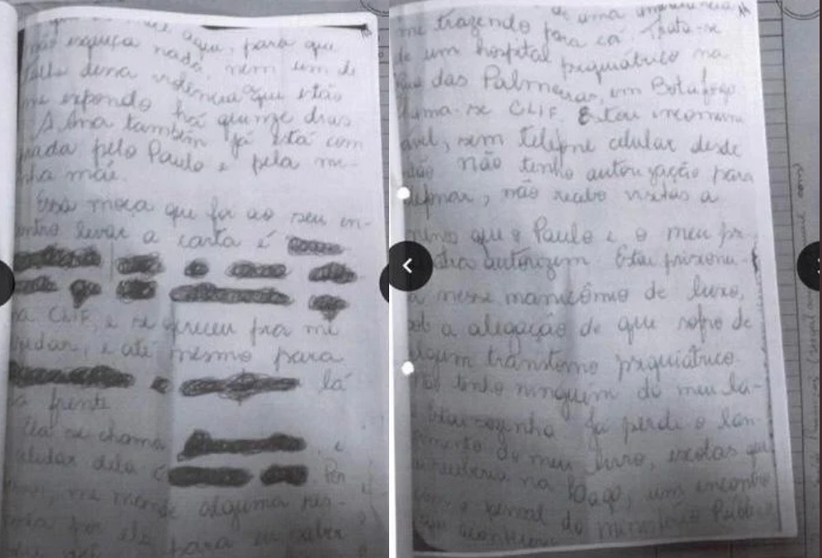 aqui, para que
não esqueça nada, nem um de-
talhe dessa violência que estão
me expondo há quinze dias.
A Ana também já está com
pelo Paulo e pela mi-
nha mãe.
Essa moça que foi ao seu en-
contro levar a carta é
na CLIF, e se ofereceu pra me
ajudar, e até mesmo para
lá
a frente.
Ela se chama e
celular dela é Por
me mande alguma res-
por ela para eu saber
de uma
me trazendo para cá. Trata-se
de um hospital psiquiátrico na
Rua das Palmeiras, em Botafogo
chama-se CLIF. Estou incomuni-
cável, sem telefone celular desde
então não tenho autorização para
telefonar, não recebo visitas a
menos que o Paulo e o meu psi-
quiatra autorizem. Estou prisionei-
ra nesse manicômio de luxo,
sob a alegação de que sofro de
algum transtorno psiquiátrico.
Não tenho ninguém do meu la-
do. Estou sozinha. Já perdi o lan-
çamento do meu livro, escolas que
na um encontro
com o pessoal do Ministério Público